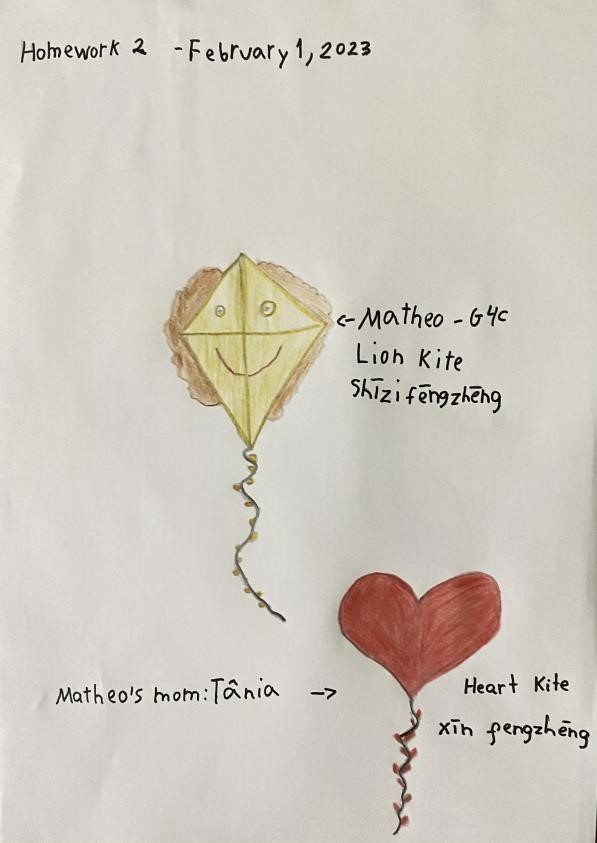 Homework 2 - February 1, 2023
← Matheo - G4c
Lion Kite
Shīzi fēngzhēng
Matheo's mom: Tânia →
Heart Kite
xīn fengzhēng